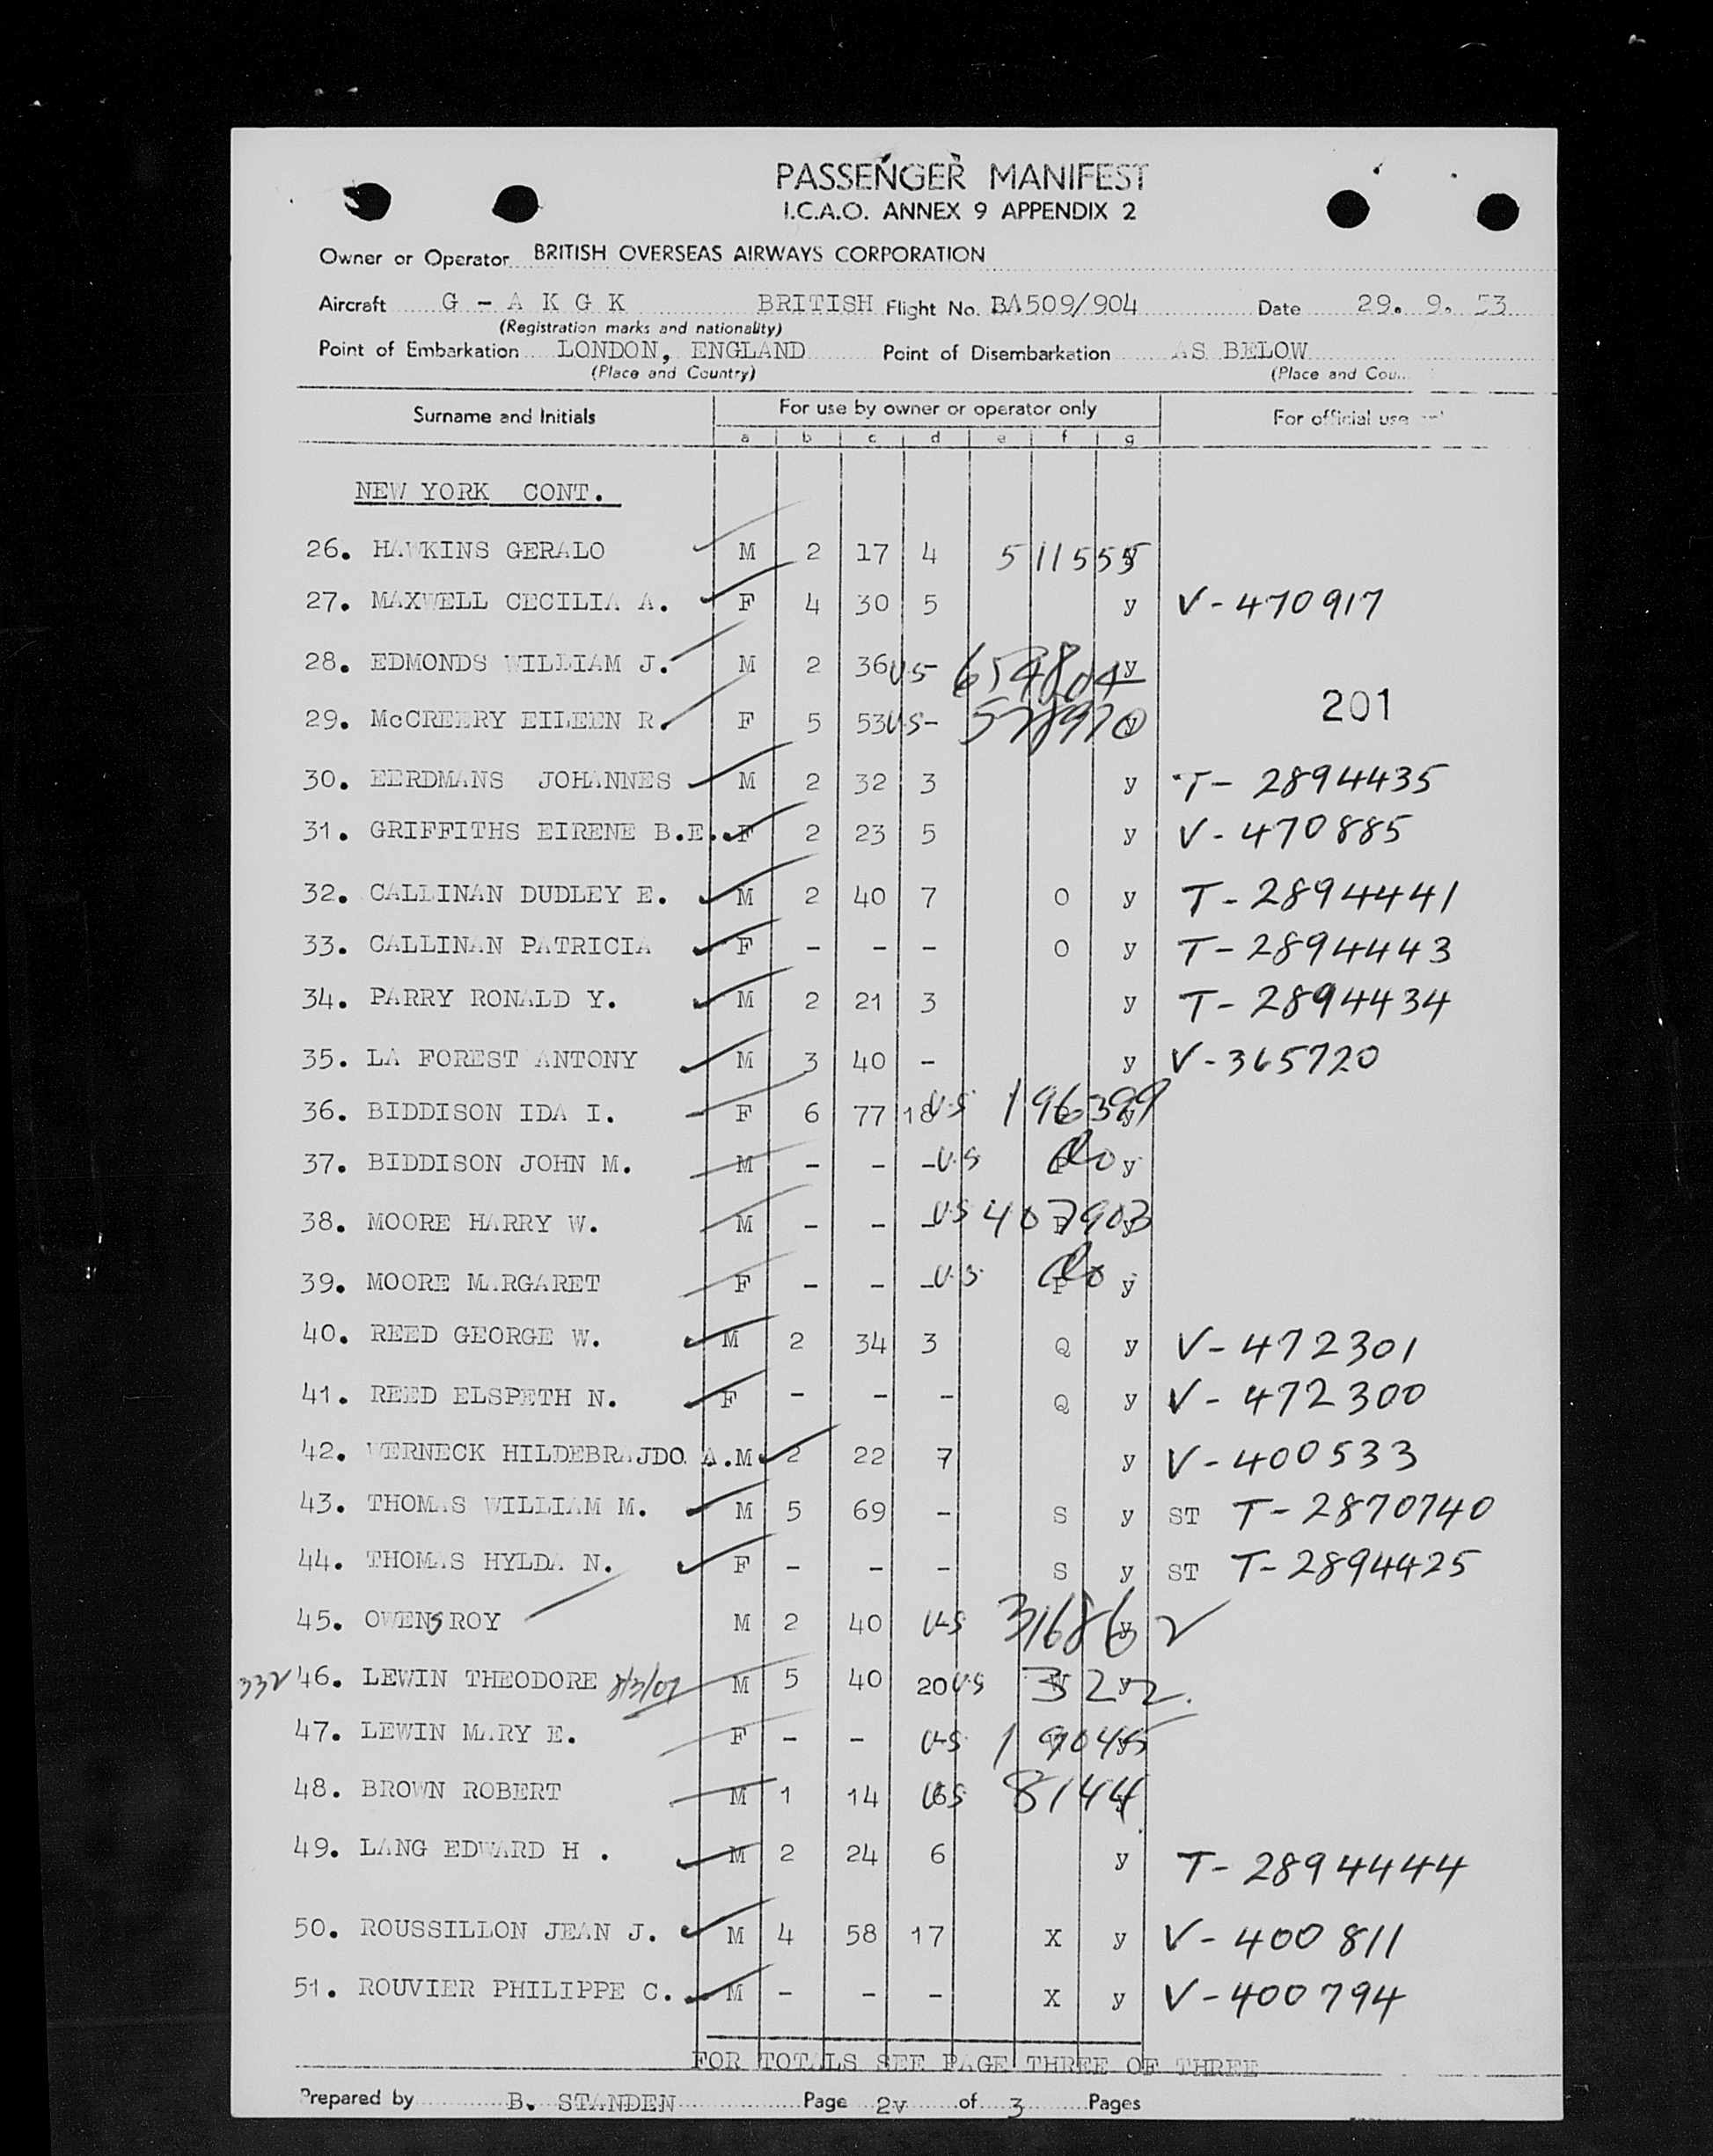 PASSENGER MANIFEST
I.C.A.O. ANNEX 9 APPENDIX 2
Owner or Operator BRITISH OVERSEAS AIRWAYS CORPORATION
Aircraft G - A K G K BRITISH Flight No. BA509/904 Date 29. 9. 53
(Registration marks and nationality)
Point of Embarkation LONDON, ENGLAND Point of Disembarkation AS BELOW
(Place and Country) (Place and Cou..
Surname and Initials For use by owner or operator only For official use
a b c d e f g
NEW YORK CONT.
26. HAWKINS GERALO M 2 17 4 511555 y
27. MAXWELL CECILIA A. F 4 30 5 y V-470917
28. EDMONDS WILLIAM J. M 2 36 US- 654804 y
29. McCREERY EILEEN R. F 5 53 US- 578970 y
201
30. EERDMANS JOHANNES M 2 32 3 y T-2894435
31. GRIFFITHS EIRENE B.E. F 2 23 5 y V-470885
32. CALLINAN DUDLEY E. M 2 40 7 O y T-2894441
33. CALLINAN PATRICIA F - - - O y T-2894443
34. PARRY RONALD Y. M 2 21 3 y T-2894434
35. LA FOREST ANTONY M 3 40 - y V-365720
36. BIDDISON IDA I. F 6 77 18 U.S 196399 y
37. BIDDISON JOHN M. M - - - U.S Do y
38. MOORE HARRY W. M - - - U.S 407903 y
39. MOORE MARGARET F - - - U.S. Do P y
40. REED GEORGE W. M 2 34 3 Q y V-472301
41. REED ELSPETH N. F - - - Q y V-472300
42. WERNECK HILDEBRAJDO A. M 2 22 7 y V-400533
43. THOMAS WILLIAM M. M 5 69 - S y ST T-2870740
44. THOMAS HYLDA N. F - - - S y ST T-2894425
45. OWENS ROY M 2 40 US 31686 y 2
332 46. LEWIN THEODORE 8/3/07 M 5 40 20 U.S 322. y
47. LEWIN MARY E. F - - US 19045
48. BROWN ROBERT M 1 14 US 8144
49. LANG EDWARD H . M 2 24 6 y T-2894444
50. ROUSSILLON JEAN J. M 4 58 17 X y V-400811
51. ROUVIER PHILIPPE C. M - - - X y V-400794
FOR TOTALS SEE PAGE THREE OF THREE
Prepared by B. STANDEN Page 2v of 3 Pages